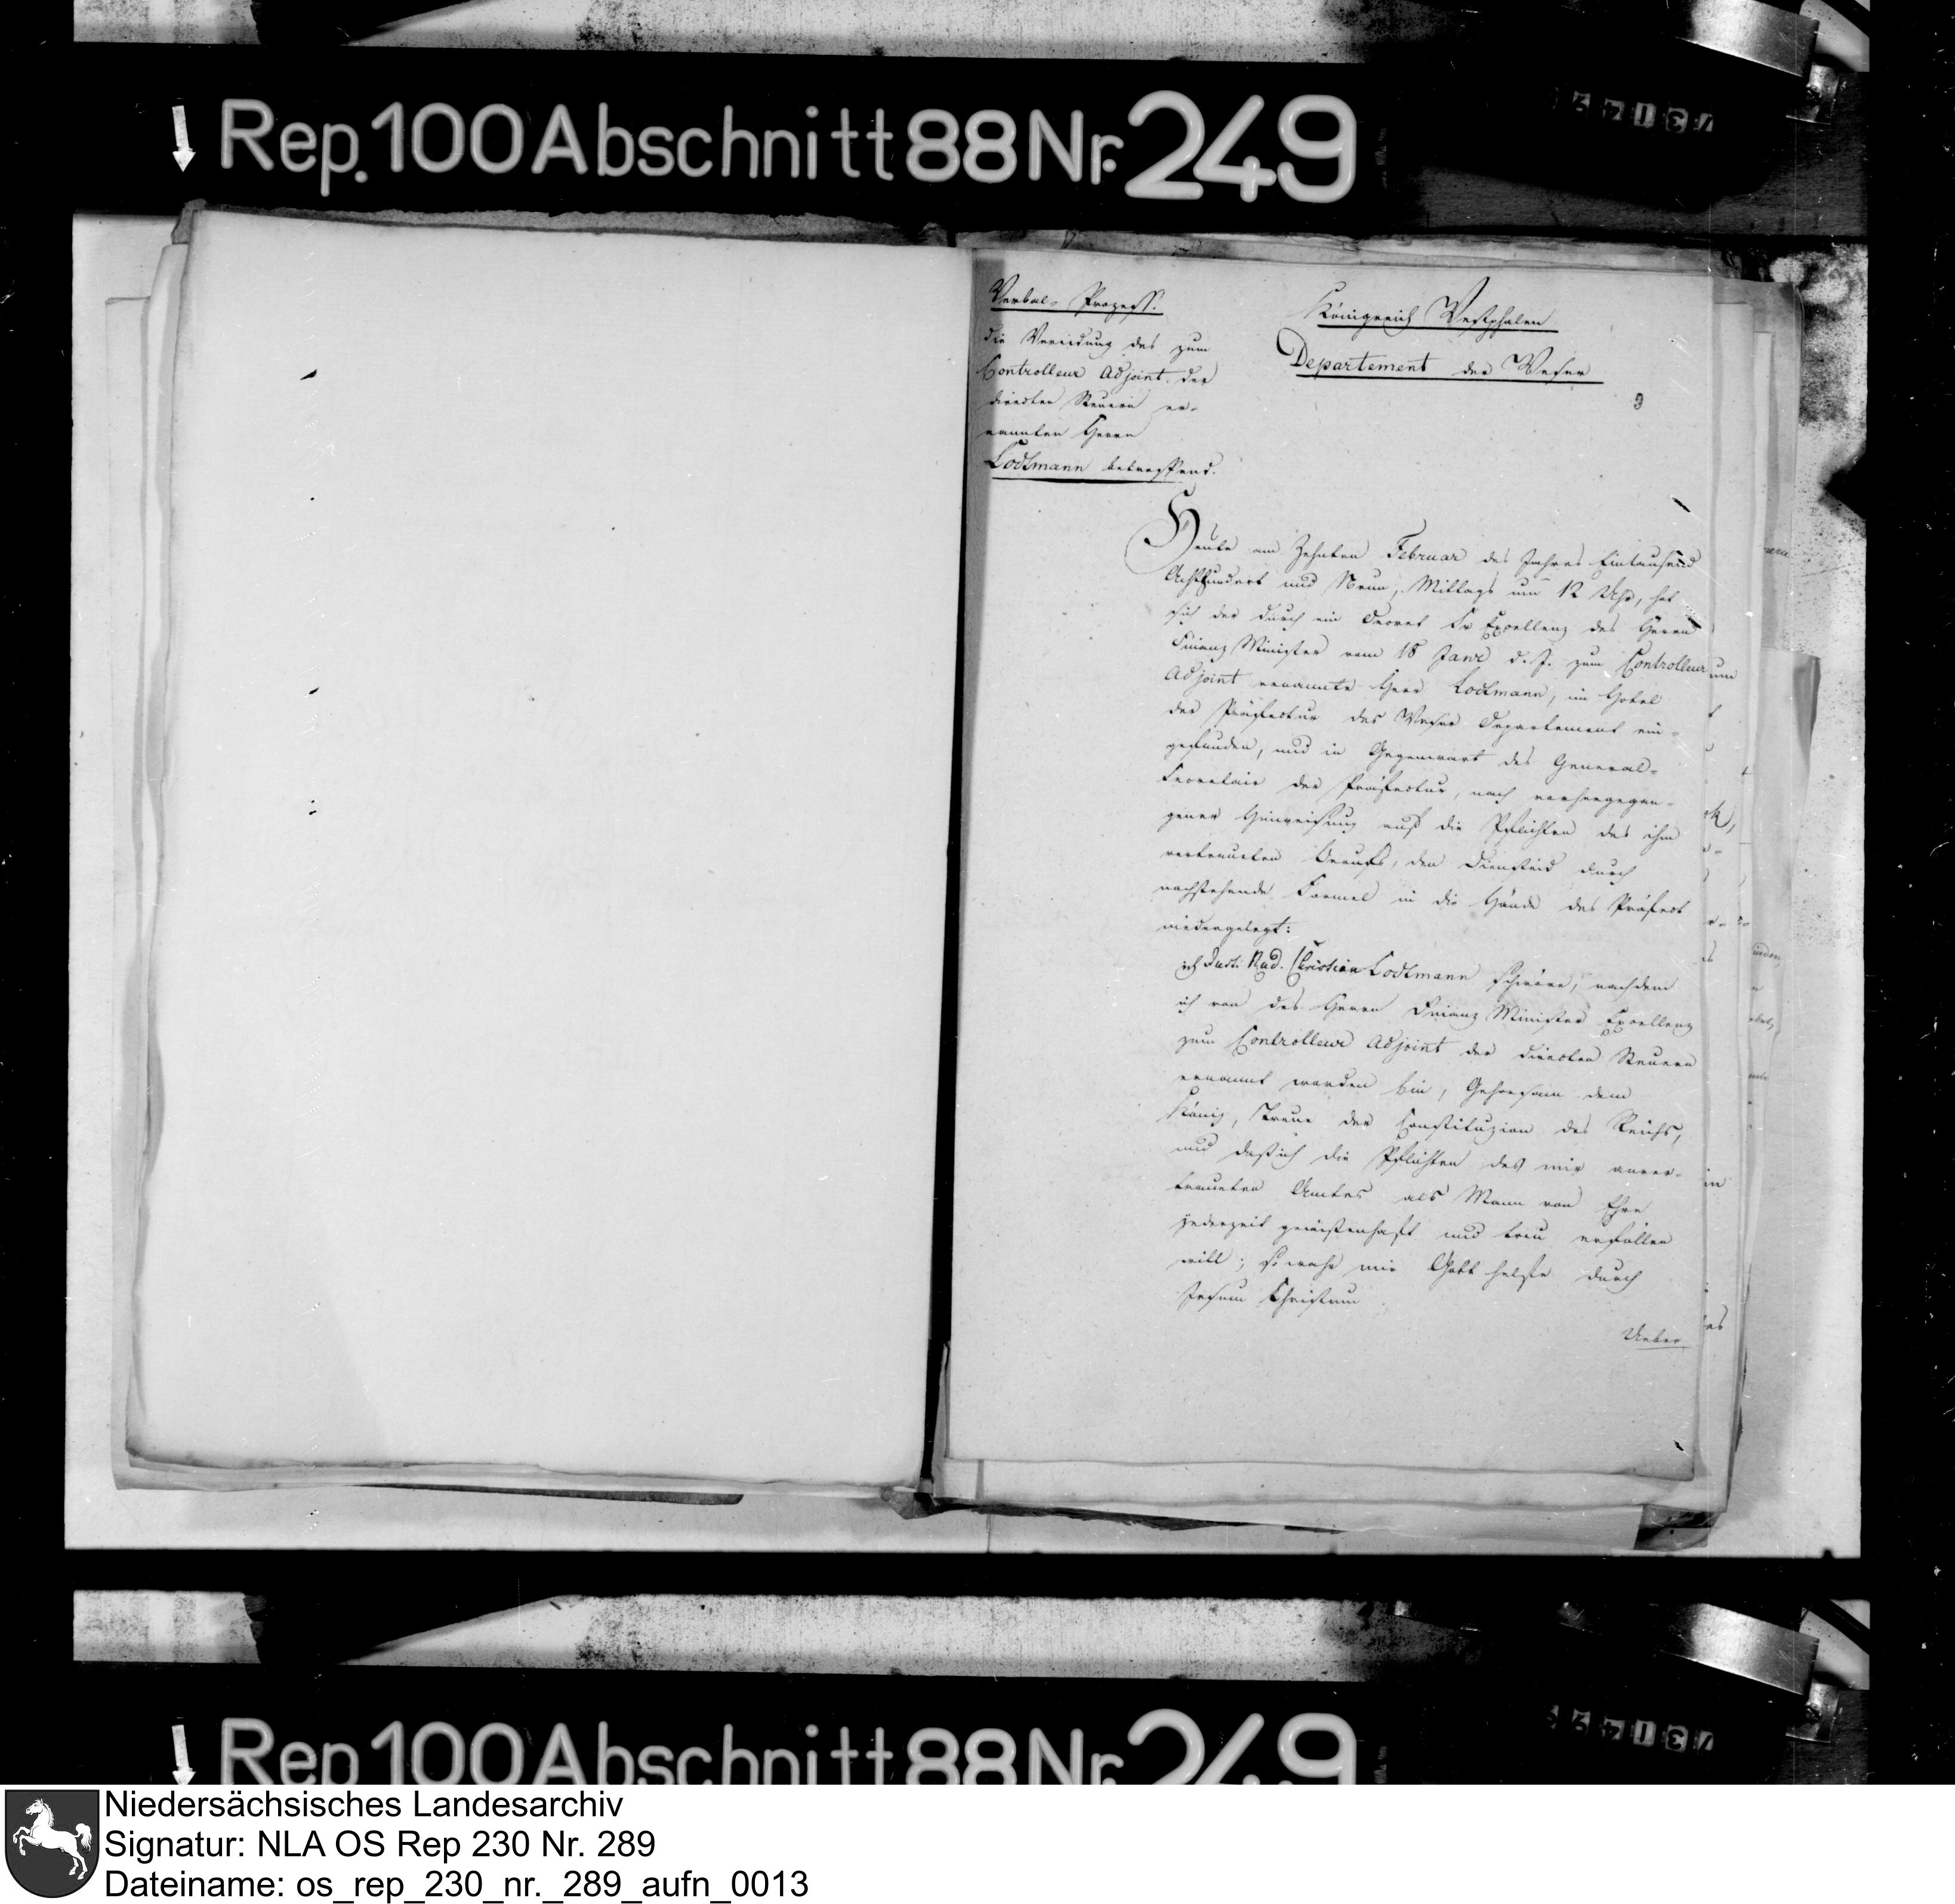 Rep. 100 Abschnitt 88 Nr. 249
Verbal- Prozeß.
die Vereidung des zum
Controlleur Adjoint der
directen Steuern er-
nannten Herrn
Lodtmann betreffend.
Königreich Westphalen
Departement der Weser
9
Heute am Zehnten Februar des Jahres Eintausend
Achthundert und Neun, Mittags um 12 Uhr, hat
sich der durch ein Decret Sr Excellenz des Herrn
Finanz Minister vom 18 Janr d. J. zum Controlleur
Adjoint ernannte Herr Lodtmann, im Hotel
der Präfectur des Weser Departement ein-
gefunden, und in Gegenwart des General-
Secretair der Präfectur, nach vorhergegan-
gener Hinweisung auf die Pflichten des ihm
vertraueten Berufs, den Diensteid durch
nachstehende Formel in die Hände des Präfect
niedergelegt:
ich Just. Rud. Christian Lodtmann schwöre, nachdem
ich von des Herrn Finanz Minister Excellenz
zum Controlleur Adjoint der directen Steuern
ernannt worden bin, Gehorsam dem
König, Treue der Constituzion des Reichs,
und daß ich die Pflichten des mir anver-
traueten Amtes als Mann von Ehre
jederzeit gewissenhaft und treu erfüllen
will; so wahr mir Gott helfe durch
Jesum Christum
Ueber
Rep. 100 Abschnitt 88 Nr. 249
Niedersächsisches Landesarchiv
Signatur: NLA OS Rep 230 Nr. 289
Dateiname: os_rep_230_nr._289_aufn_0013